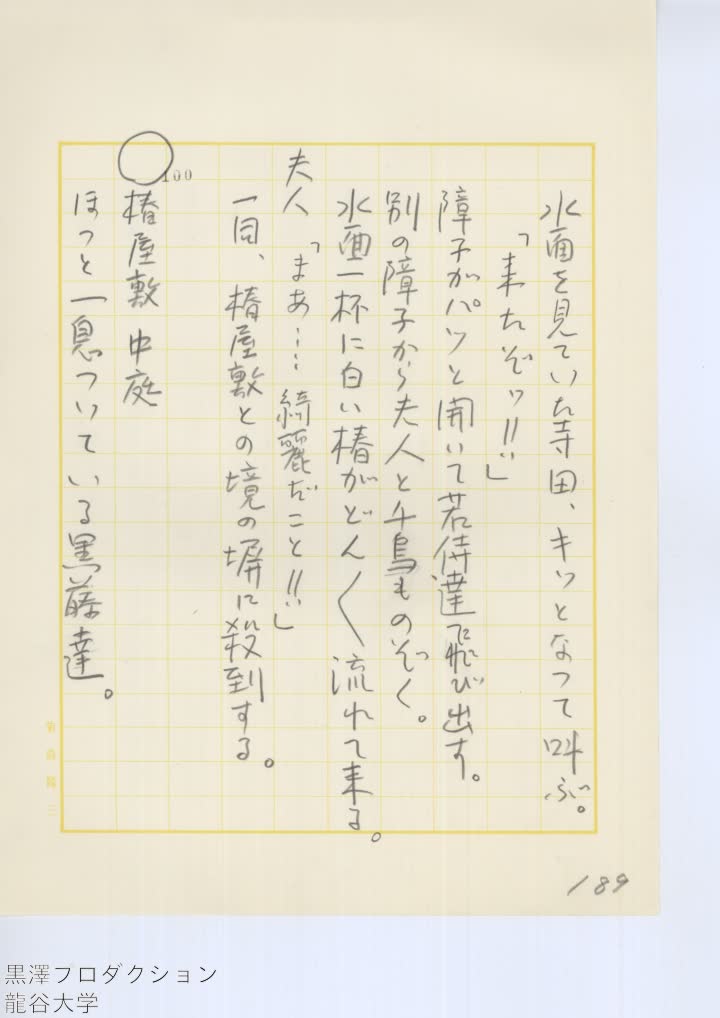 水面を見ていた寺田、キッとなって叫ぶ。
「来たぞッ!!」
障子がパッと開いて若侍達飛び出す。
別の障子から夫人と千鳥ものぞく。
水面一杯に白い椿がどん〱流れて来る。
夫人「まあ……綺麗だこと!!」
一同、椿屋敷との境の塀に殺到する。
100
○
椿屋敷 中庭
ほっと一息ついている黒藤達。
189
黒澤プロダクション
龍谷大学